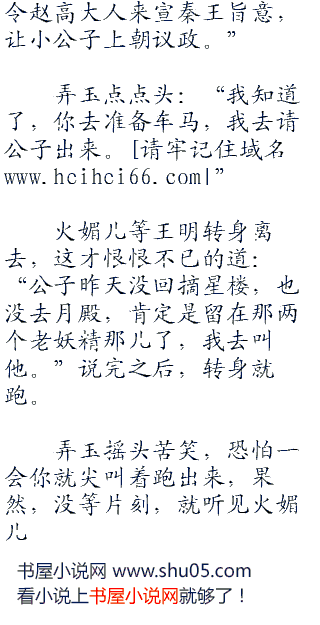 令赵高大人来宣秦王旨意，
让小公子上朝议政。”
弄玉点点头：“我知道
了，你去准备车马，我去请
公子出来。[请牢记住域名
www.hcihci66.com|”
火媚儿等王明转身离
去，这才恨恨不已的道：
“公子昨天没回摘星楼，也
没去月殿，肯定是留在那两
个老妖精那儿了，我去叫
他。”说完之后，转身就
跑。
弄玉摇头苦笑，恐怕一
会你就尖叫着跑出来，果
然，没等片刻，就听见火媚
儿
书屋小说网 www.shu05.com
看小说上书屋小说网就够了！